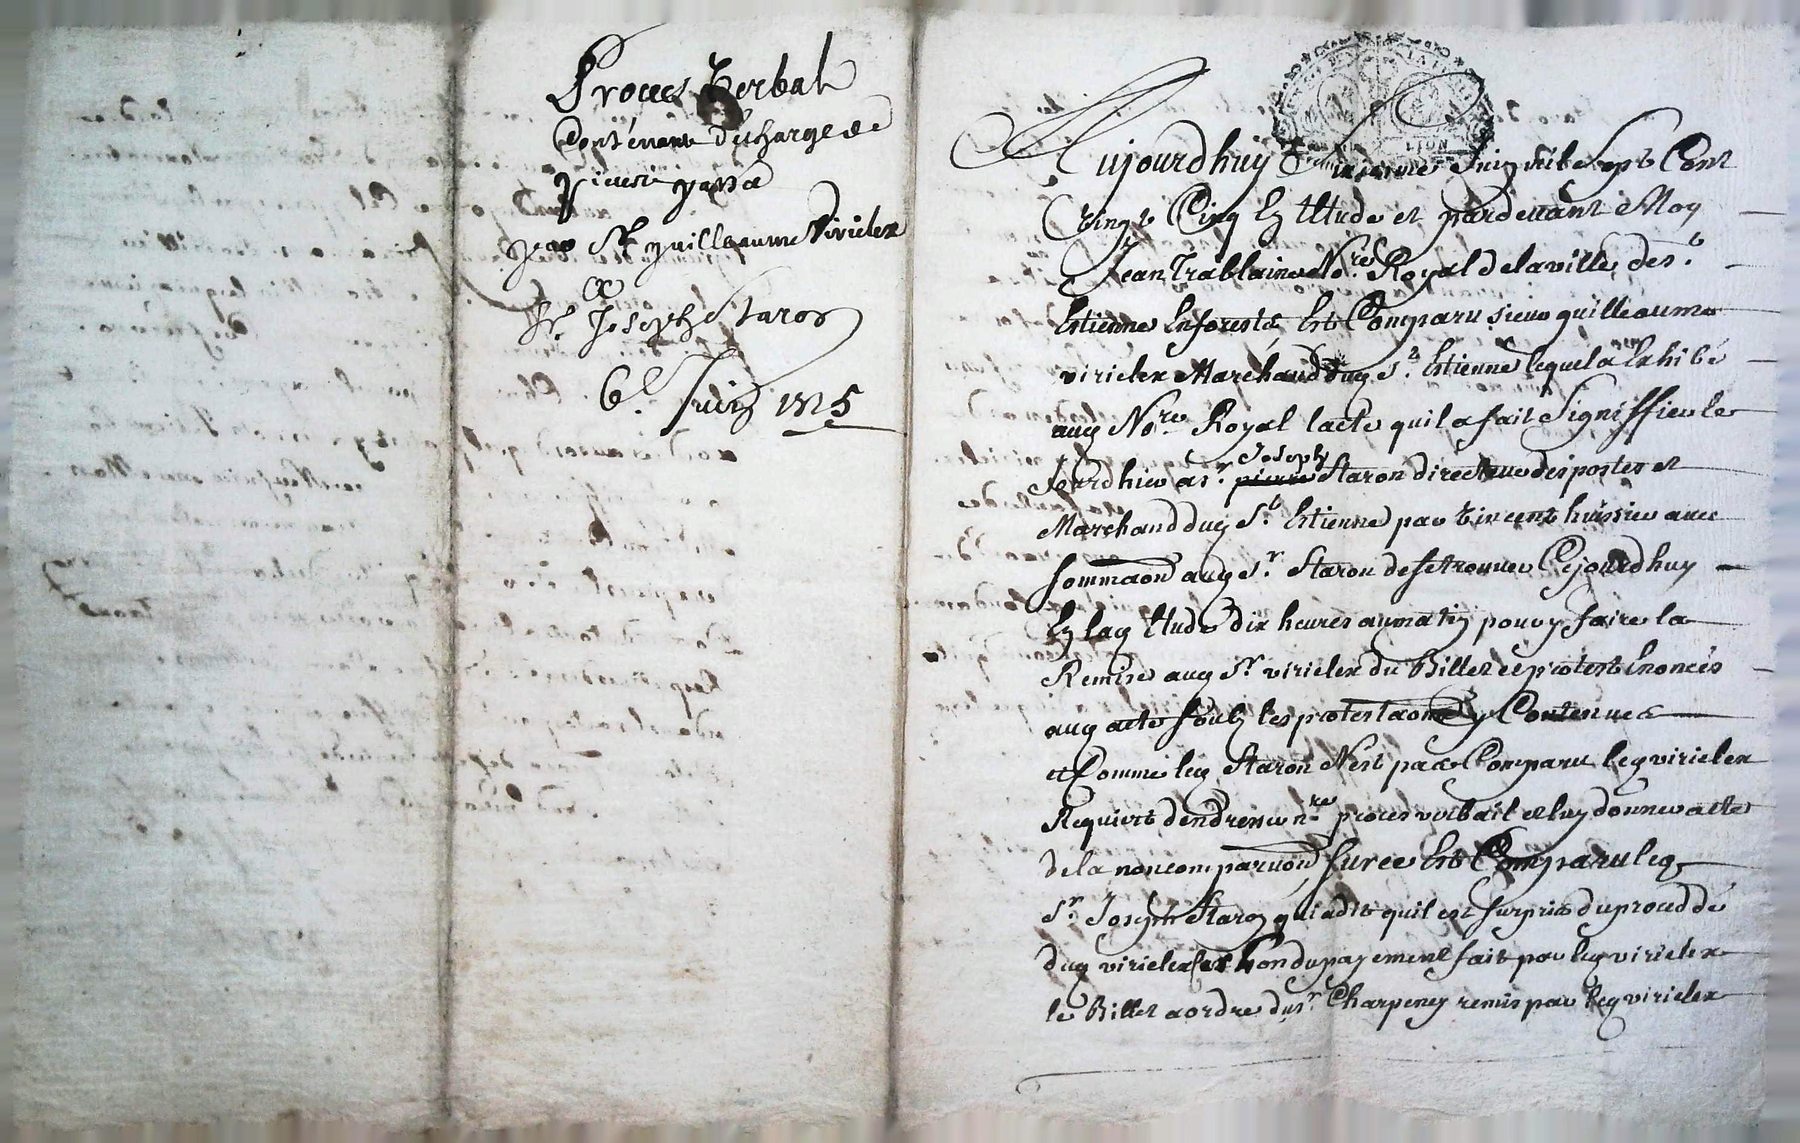 Proces Verbal
Contenant décharge de
passé
St guillaume Viricelx
&
Sr. Joseph Staron
6e. Juin 1725
Aujourdhuy Sixieme Juin mil Sept Cent
Vingt Cinq En Etude et pardevant Moy
Jean Trablaine Nore. Royal delaville de St.
Estienne Enforest Est Comparu sieur guilleaume
viricelx Marchand dud St. Estienne lequel a Exhibé
aud Nore Royal lacte quil a fait Signiffier le
Jourdhier a sr. Joseph Staron directeur despostes et
Marchand dud St. Estienne par Vincent huissier avec
sommaon aud Sr. Staron de se trouver Cejourdhuy
En lad Etude dix heures aumatin pour y faire la
Remise aud Sr viricelx du Billet et protest Enoncés
aud acte soub les protestaons y Contenues
et Comme led Staron Nest pas Comparu led viricelx
Requiert dendresser nre proces verbail et luy donner acte
de la noncomparuon surce Est Comparu led
Sr. Joseph Staron qui a dit quil est surpris du proceddé
dud viricelx payement fait par led viricelx
le Billet a ordre du sr. Charpeney remis par led viricelx
LION